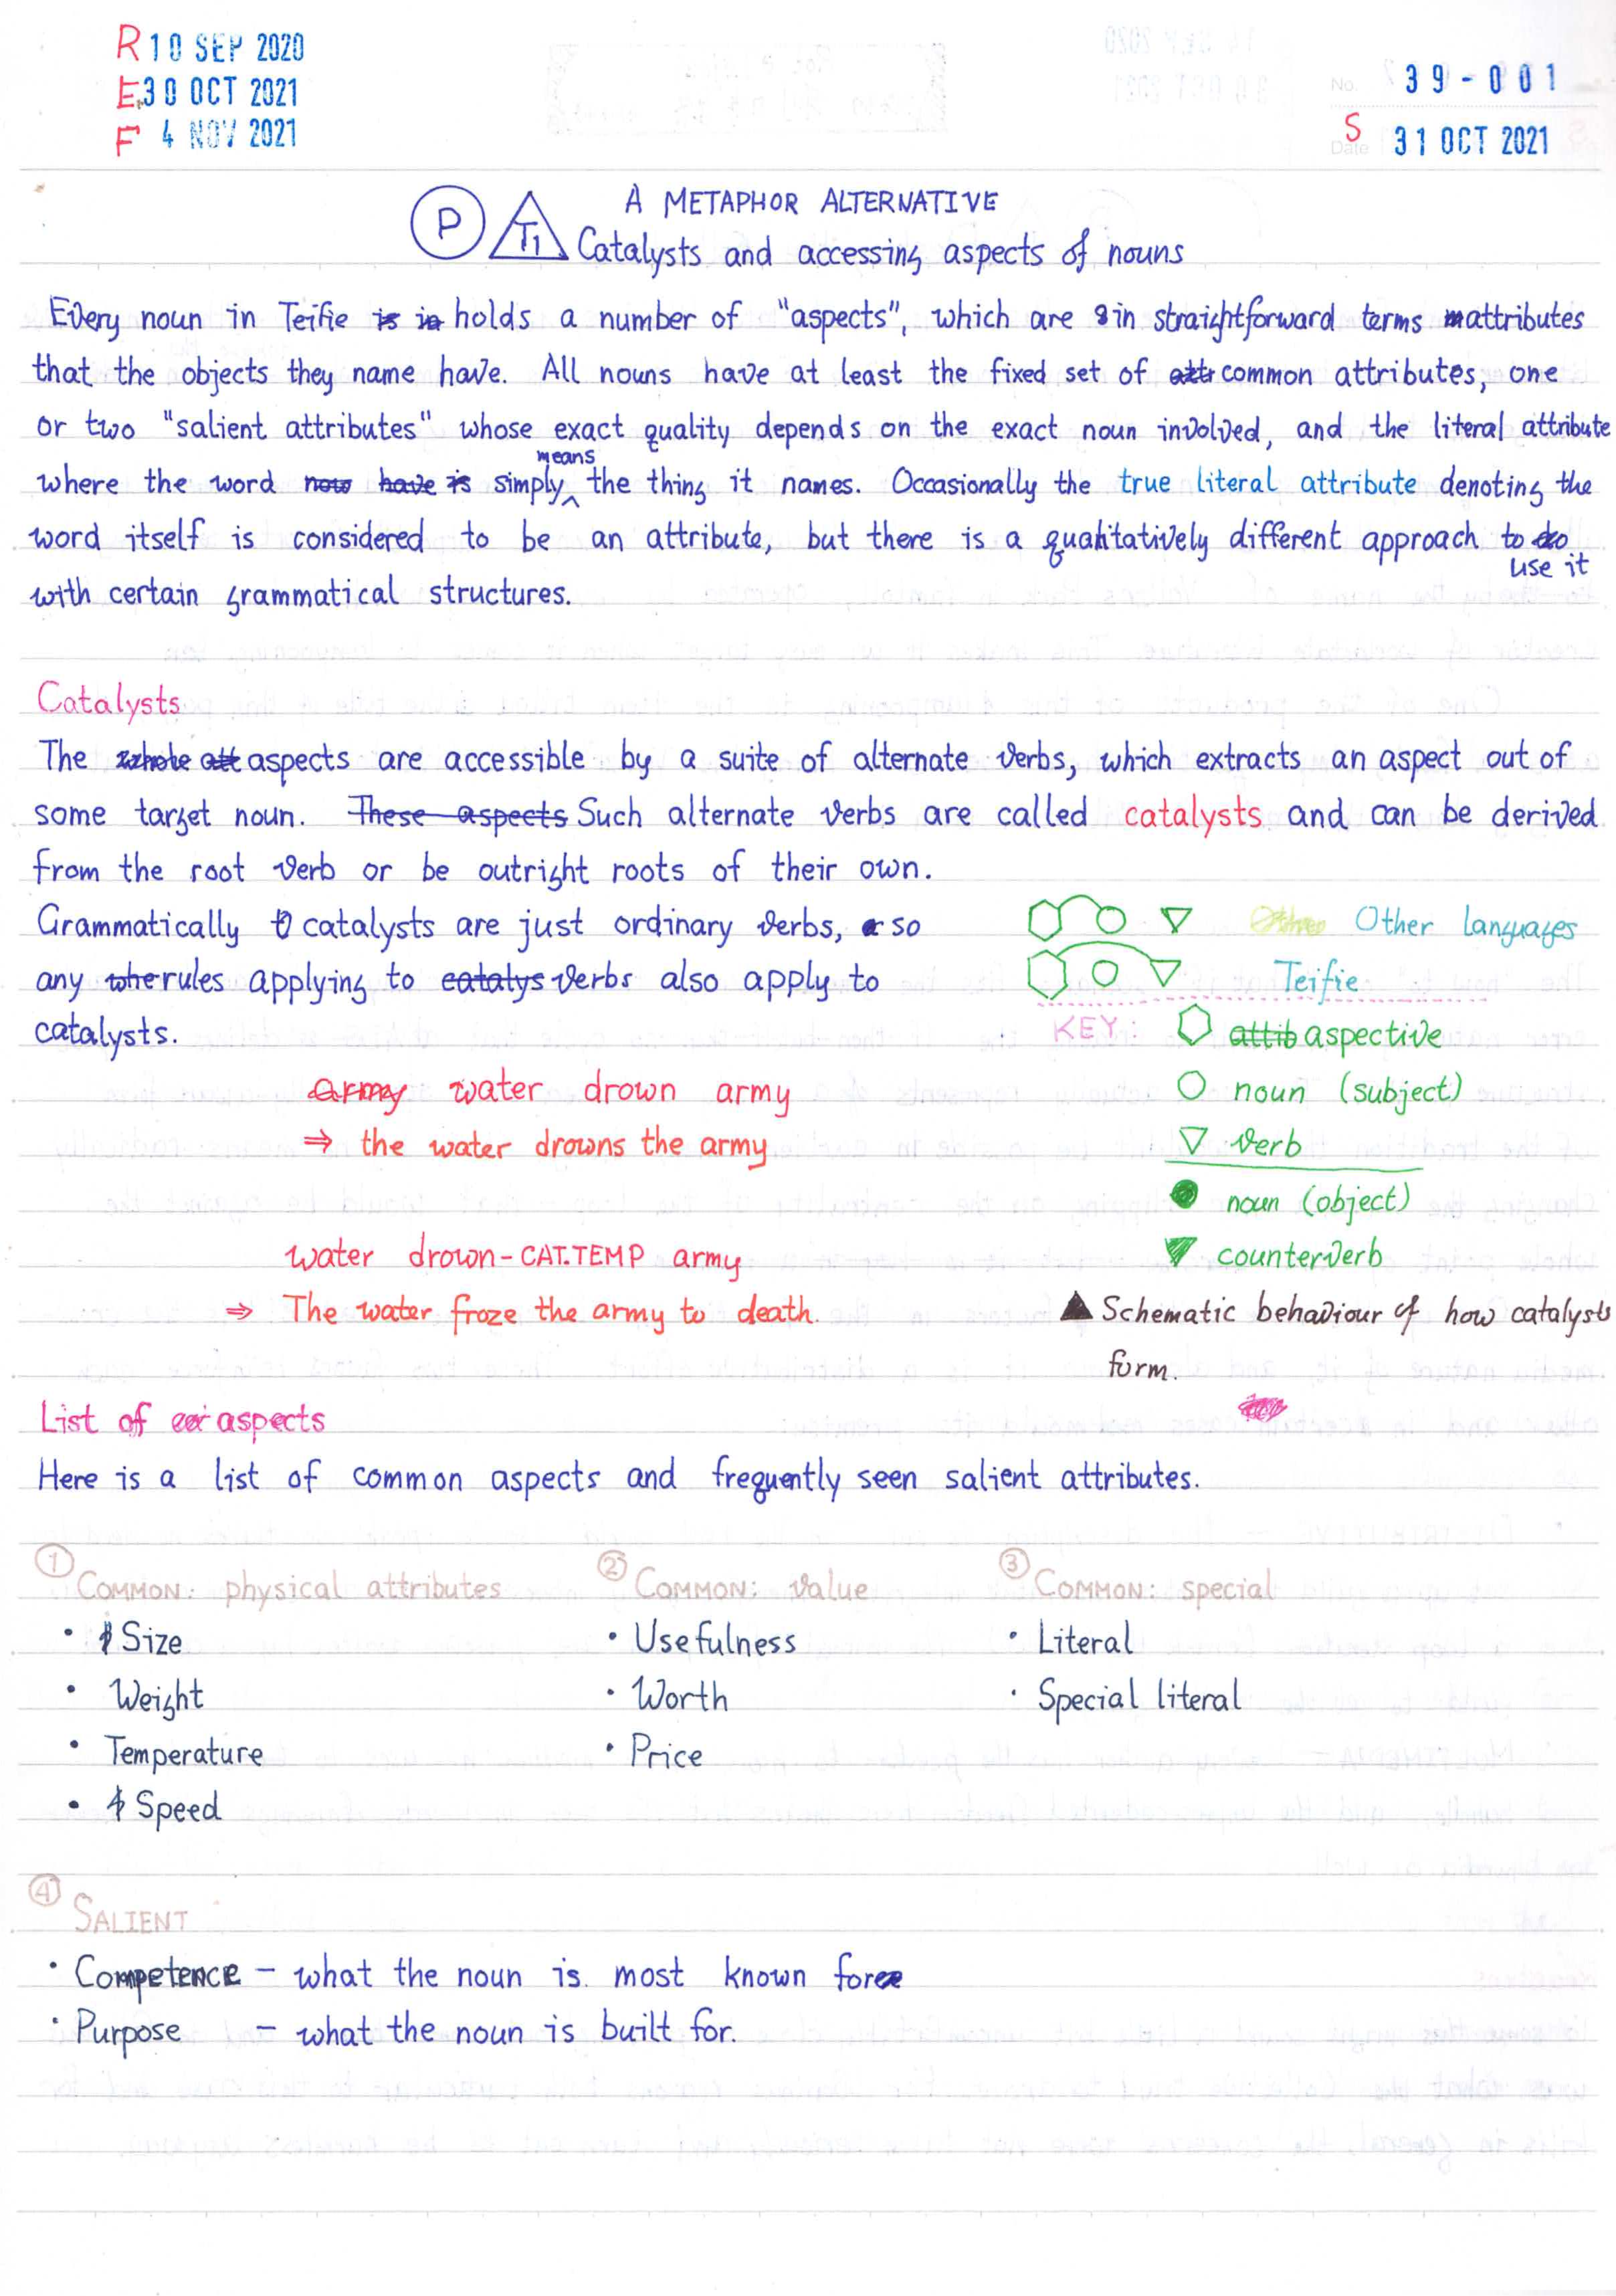 R 10 SEP 2020
E 30 OCT 2021
F 4 NOV 2021
No. 39-001
S
Date 31 OCT 2021
P T1 A METAPHOR ALTERNATIVE
Catalysts and accessing aspects of nouns
Every noun in Teifie is in holds a number of "aspects", which are in straightforward terms attributes
that the objects they name have. All nouns have at least the fixed set of attr common attributes, one
or two "salient attributes" whose exact quality depends on the exact noun involved, and the literal attribute
means
where the word now have is simply the thing it names. Occasionally the true literal attribute denoting the
word itself is considered to be an attribute, but there is a qualitatively different approach to do
use it
with certain grammatical structures.
Catalysts
The whole att aspects are accessible by a suite of alternate verbs, which extracts an aspect out of
some target noun. These aspects Such alternate verbs are called catalysts and can be derived
from the root verb or be outright roots of their own.
Grammatically catalysts are just ordinary verbs, so
any the rules applying to catalys verbs also apply to
catalysts.
Other languages
Teifie
KEY:
attib aspective
noun (subject)
verb
noun (object)
counterverb
▲ Schematic behaviour of how catalysts
form.
army water drown army
⇒ the water drowns the army
water drown-CAT.TEMP army
⇒ The water froze the army to death.
List of aspects
Here is a list of common aspects and frequently seen salient attributes.
① COMMON: physical attributes
• Size
• Weight
• Temperature
• Speed
② COMMON: value
• Usefulness
• Worth
• Price
③ COMMON: special
• Literal
• Special literal
④ SALIENT
• Competence – what the noun is most known for
• Purpose – what the noun is built for.